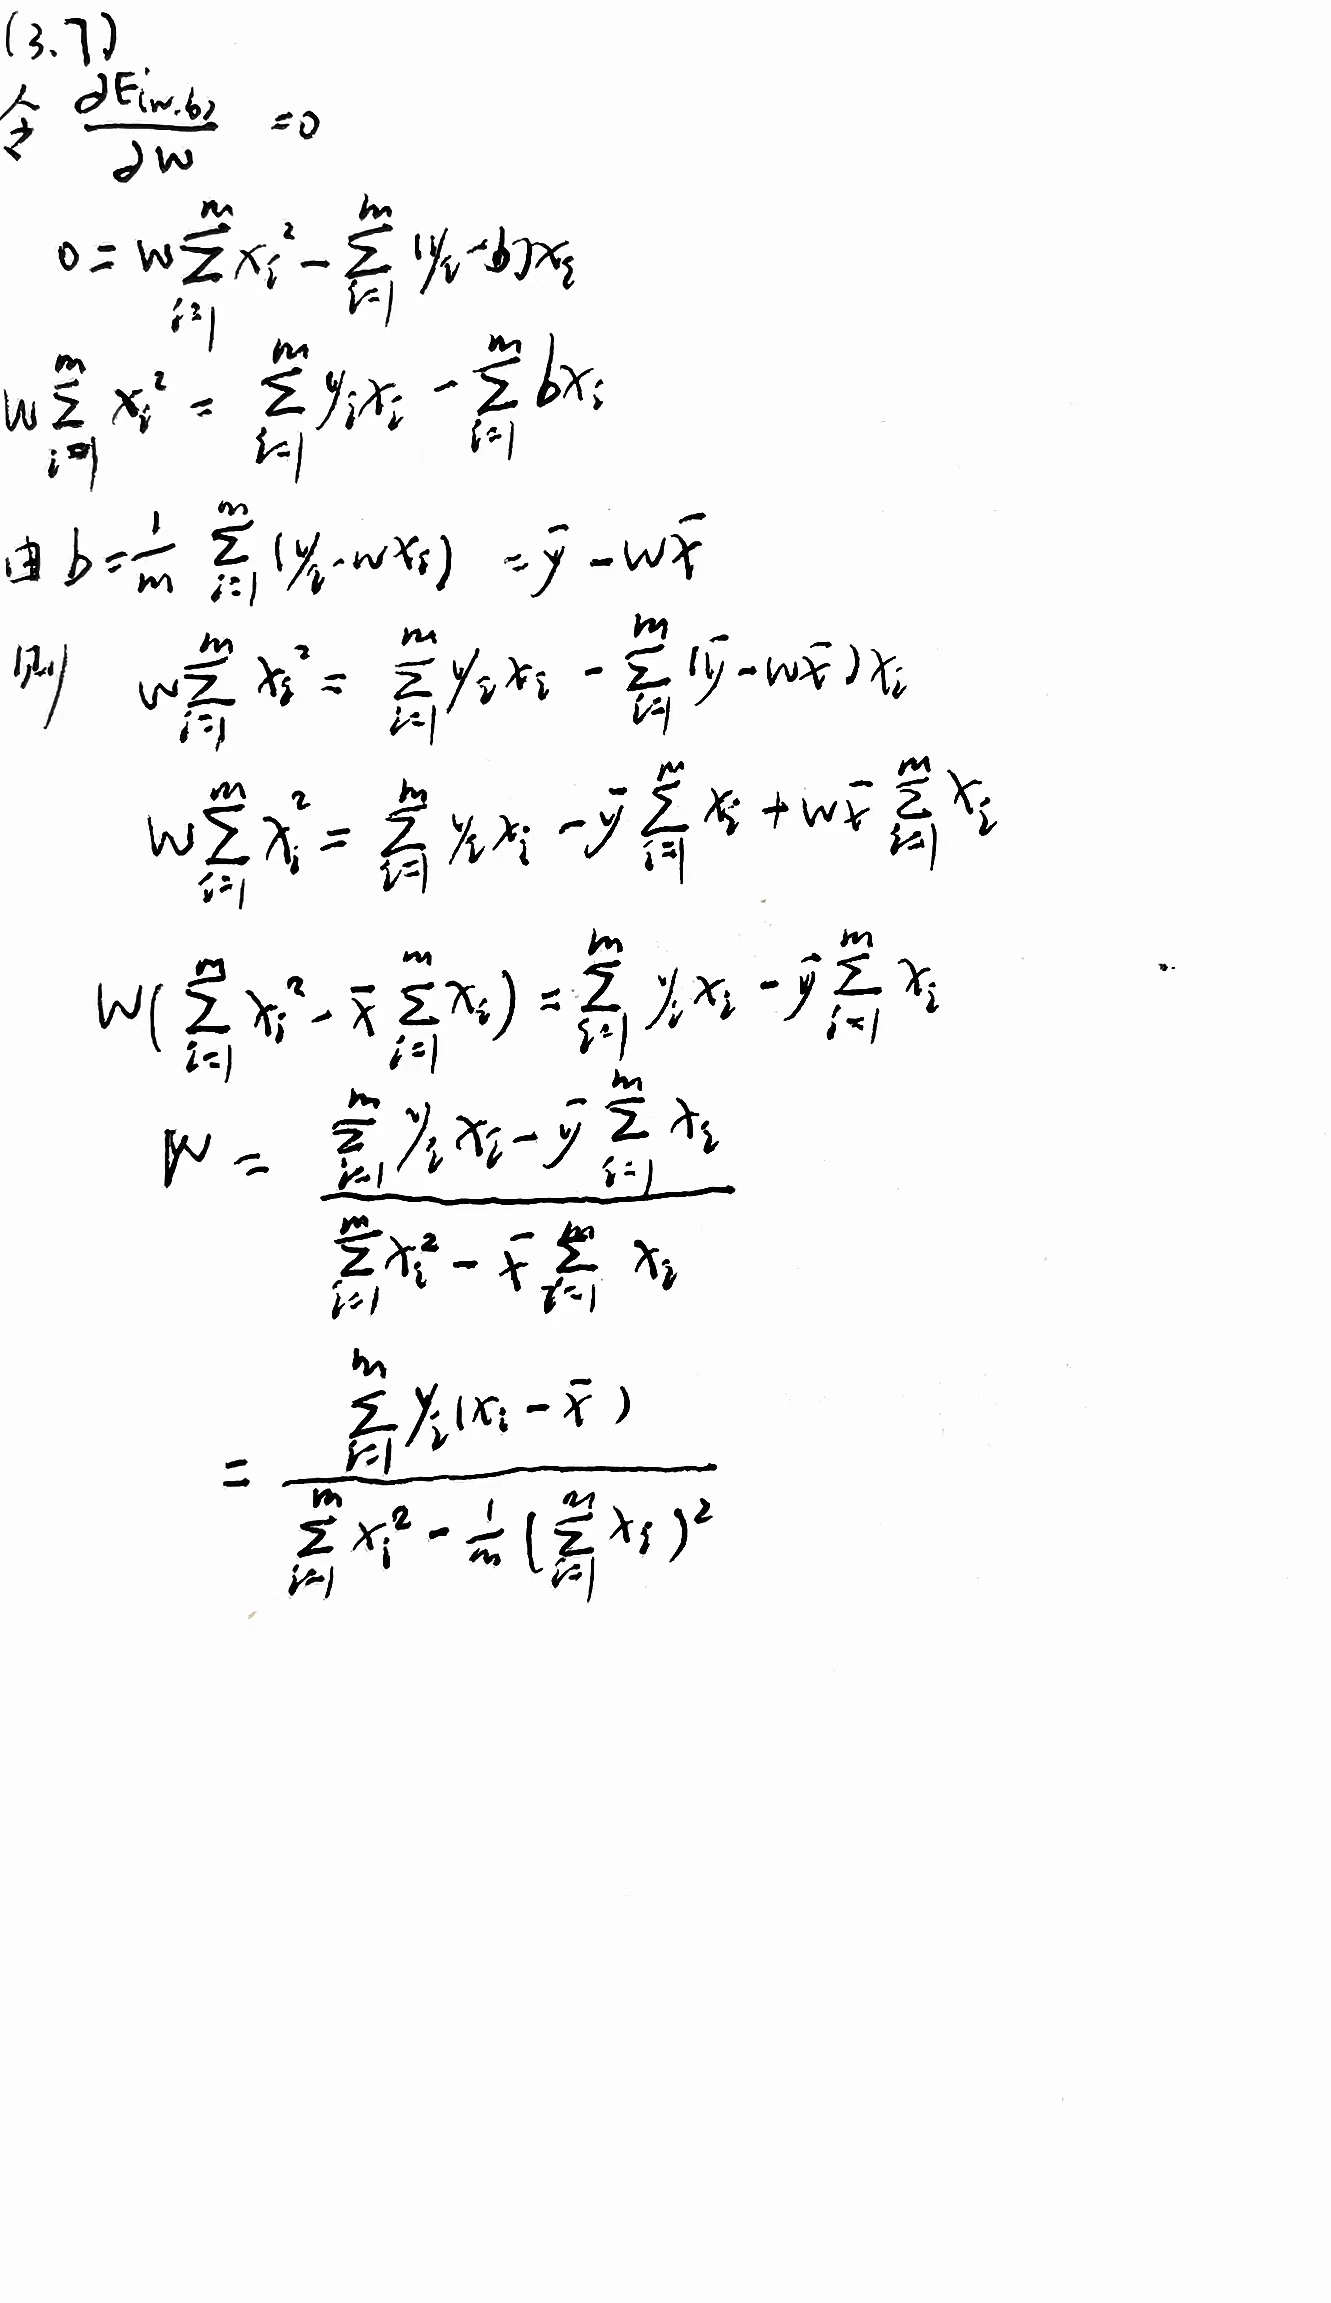 (3.7)
令 ∂E(w,b)/∂w = 0
0 = w∑_{i=1}^{m} x_i^2 - ∑_{i=1}^{m} (y_i - b)x_i
w∑_{i=1}^{m} x_i^2 = ∑_{i=1}^{m} y_i x_i - ∑_{i=1}^{m} b x_i
由 b = 1/m ∑_{i=1}^{m} (y_i - w x_i) = ȳ - w x̄
则 w∑_{i=1}^{m} x_i^2 = ∑_{i=1}^{m} y_i x_i - ∑_{i=1}^{m} (ȳ - w x̄) x_i
w∑_{i=1}^{m} x_i^2 = ∑_{i=1}^{m} y_i x_i - ȳ ∑_{i=1}^{m} x_i + w x̄ ∑_{i=1}^{m} x_i
w(∑_{i=1}^{m} x_i^2 - x̄ ∑_{i=1}^{m} x_i) = ∑_{i=1}^{m} y_i x_i - ȳ ∑_{i=1}^{m} x_i
w = (∑_{i=1}^{m} y_i x_i - ȳ ∑_{i=1}^{m} x_i) / (∑_{i=1}^{m} x_i^2 - x̄ ∑_{i=1}^{m} x_i)
= (∑_{i=1}^{m} y_i (x_i - x̄)) / (∑_{i=1}^{m} x_i^2 - 1/m (∑_{i=1}^{m} x_i)^2)